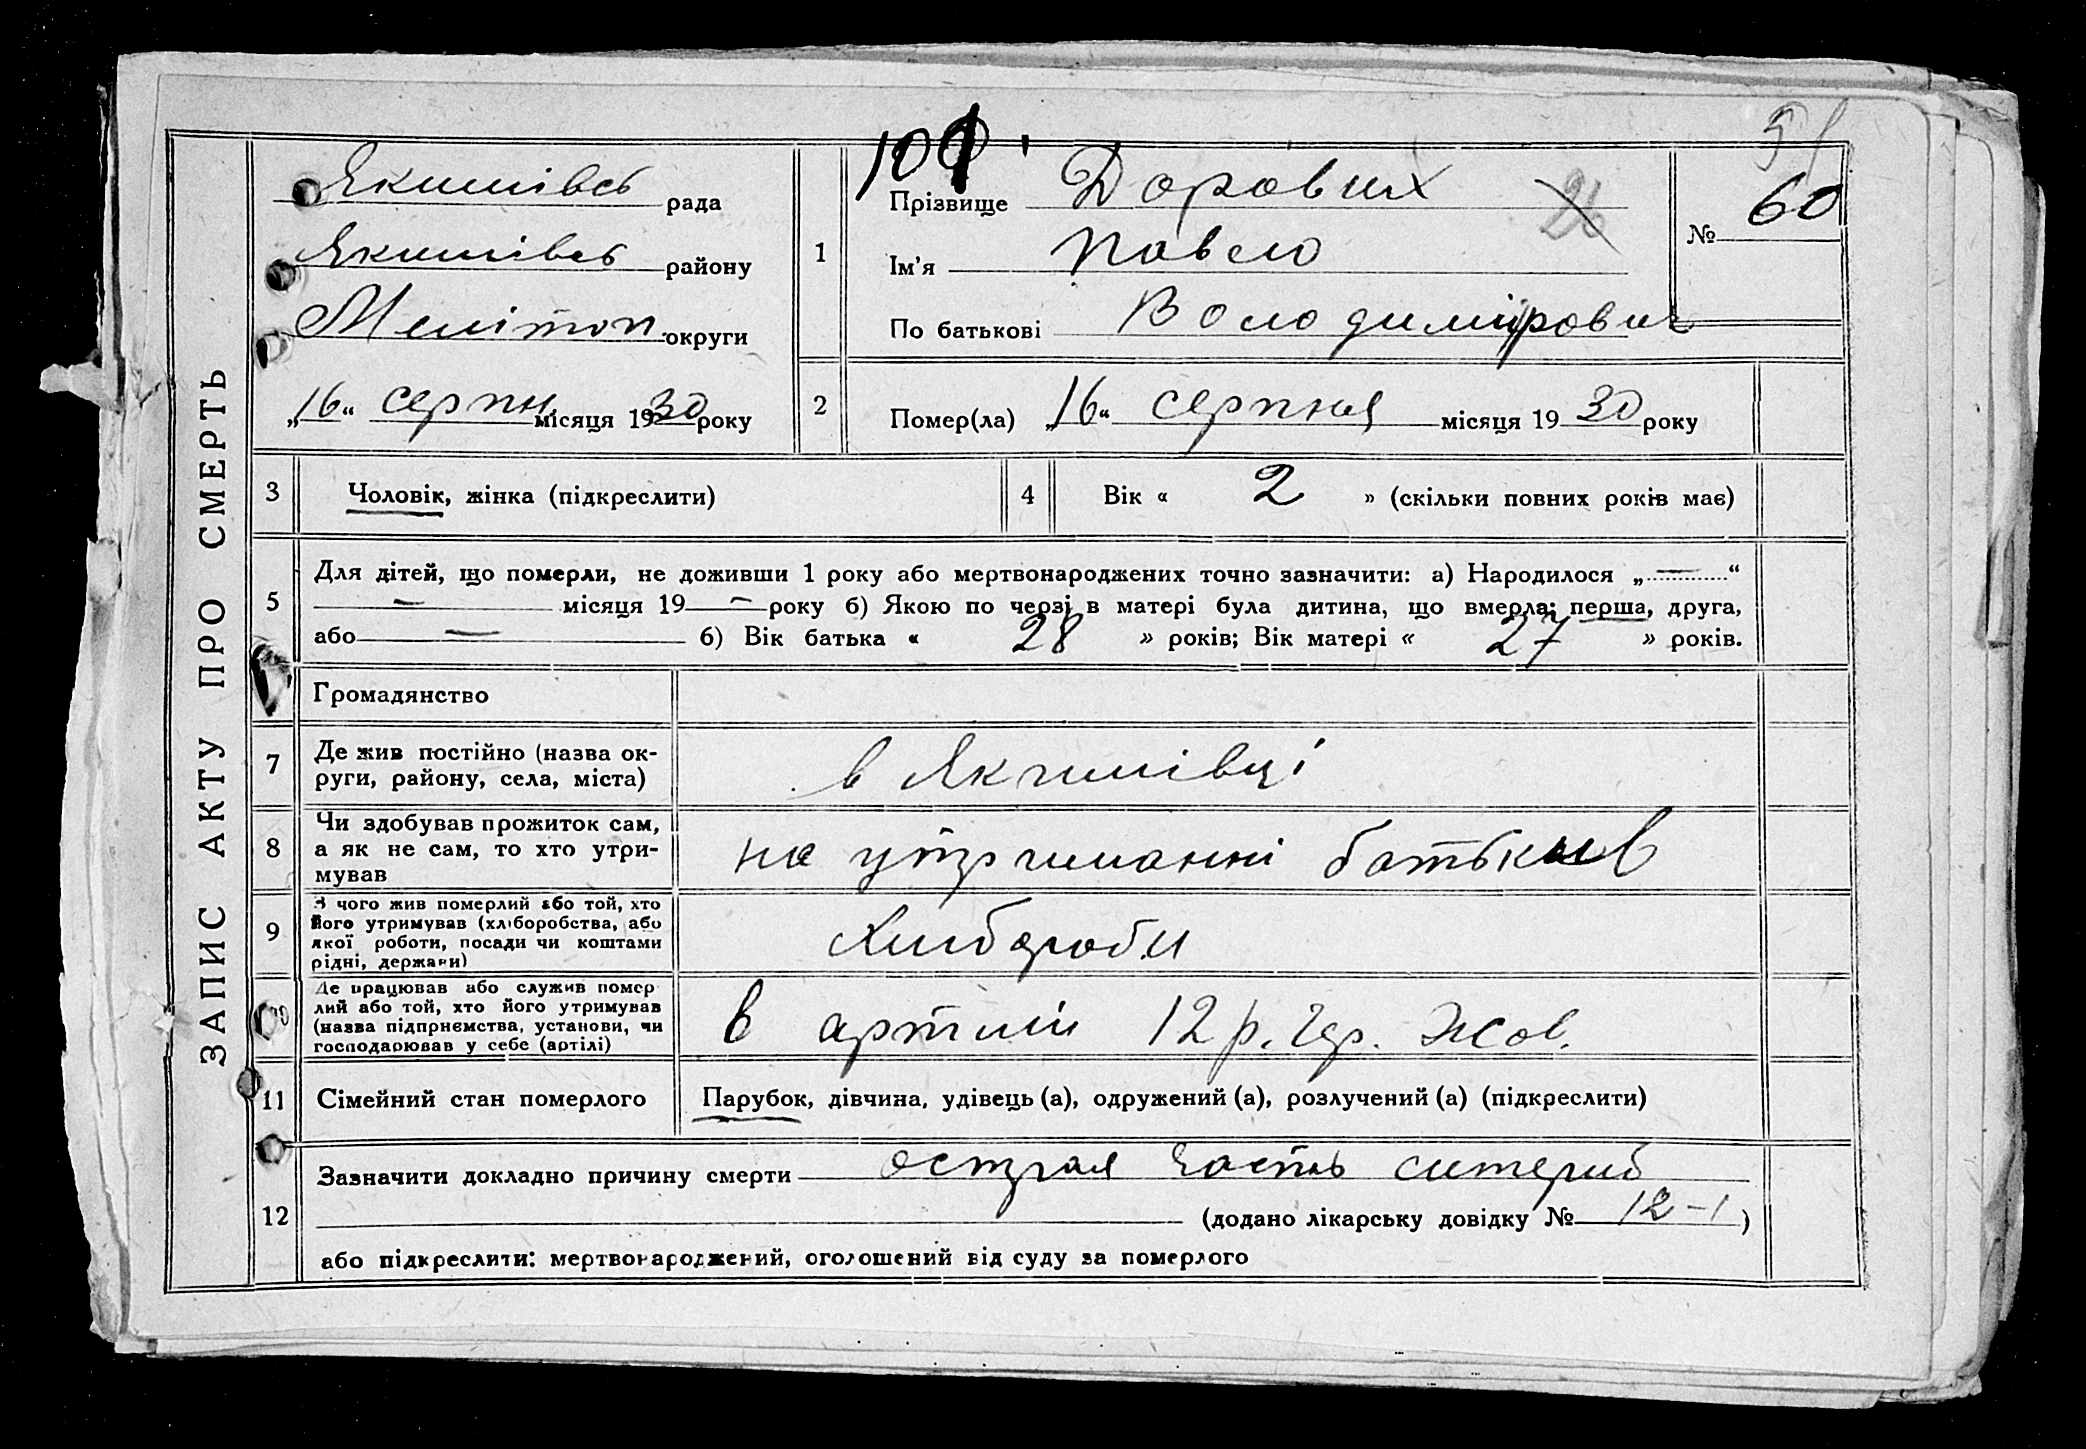 ЗАПИС АКТУ ПРО СМЕРТЬ
51
Якимівсь рада
Якимівсь району
Мелітоп округи
„16“ серпн місяця 1930 року
1
Прізвище Доровких
Ім'я Павло
По батькові Володимирович
26
№ 60
2
Помер(ла) „16“ серпня місяця 19 30 року
3
Чоловік, жінка (підкреслити)
4
Вік « 2 » (скільки повних років має)
5
Для дітей, що померли, не доживши 1 року або мертвонароджених точно зазначити: а) Народилося „—“
— місяця 19 — року б) Якою по черзі в матері була дитина, що вмерла: перша, друга,
або — б) Вік батька « 28 » років; Вік матері « 27 » років.
Громадянство
7
Де жив постійно (назва ок-
руги, району, села, міста)
в Якимівці
8
Чи здобував прожиток сам,
а як не сам, то хто утри-
мував
на утриманні батьків
9
З чого жив померлий або той, хто
його утримував (хліборобства, або
якої роботи, посади чи коштами
рідні, держави)
10
Де працював або служив помер
лий або той, хто його утримував
(назва підприємства, установи, чи
господарював у себе (артілі)
в артілі 12 р. Жов.
11
Сімейний стан померлого
Парубок, дівчина, удівець (а), одружений (а), розлучений (а) (підкреслити)
12
Зазначити докладно причину смерти острая
(додано лікарську довідку № 12-1)
або підкреслити: мертвонароджений, оголошений від суду за померлого